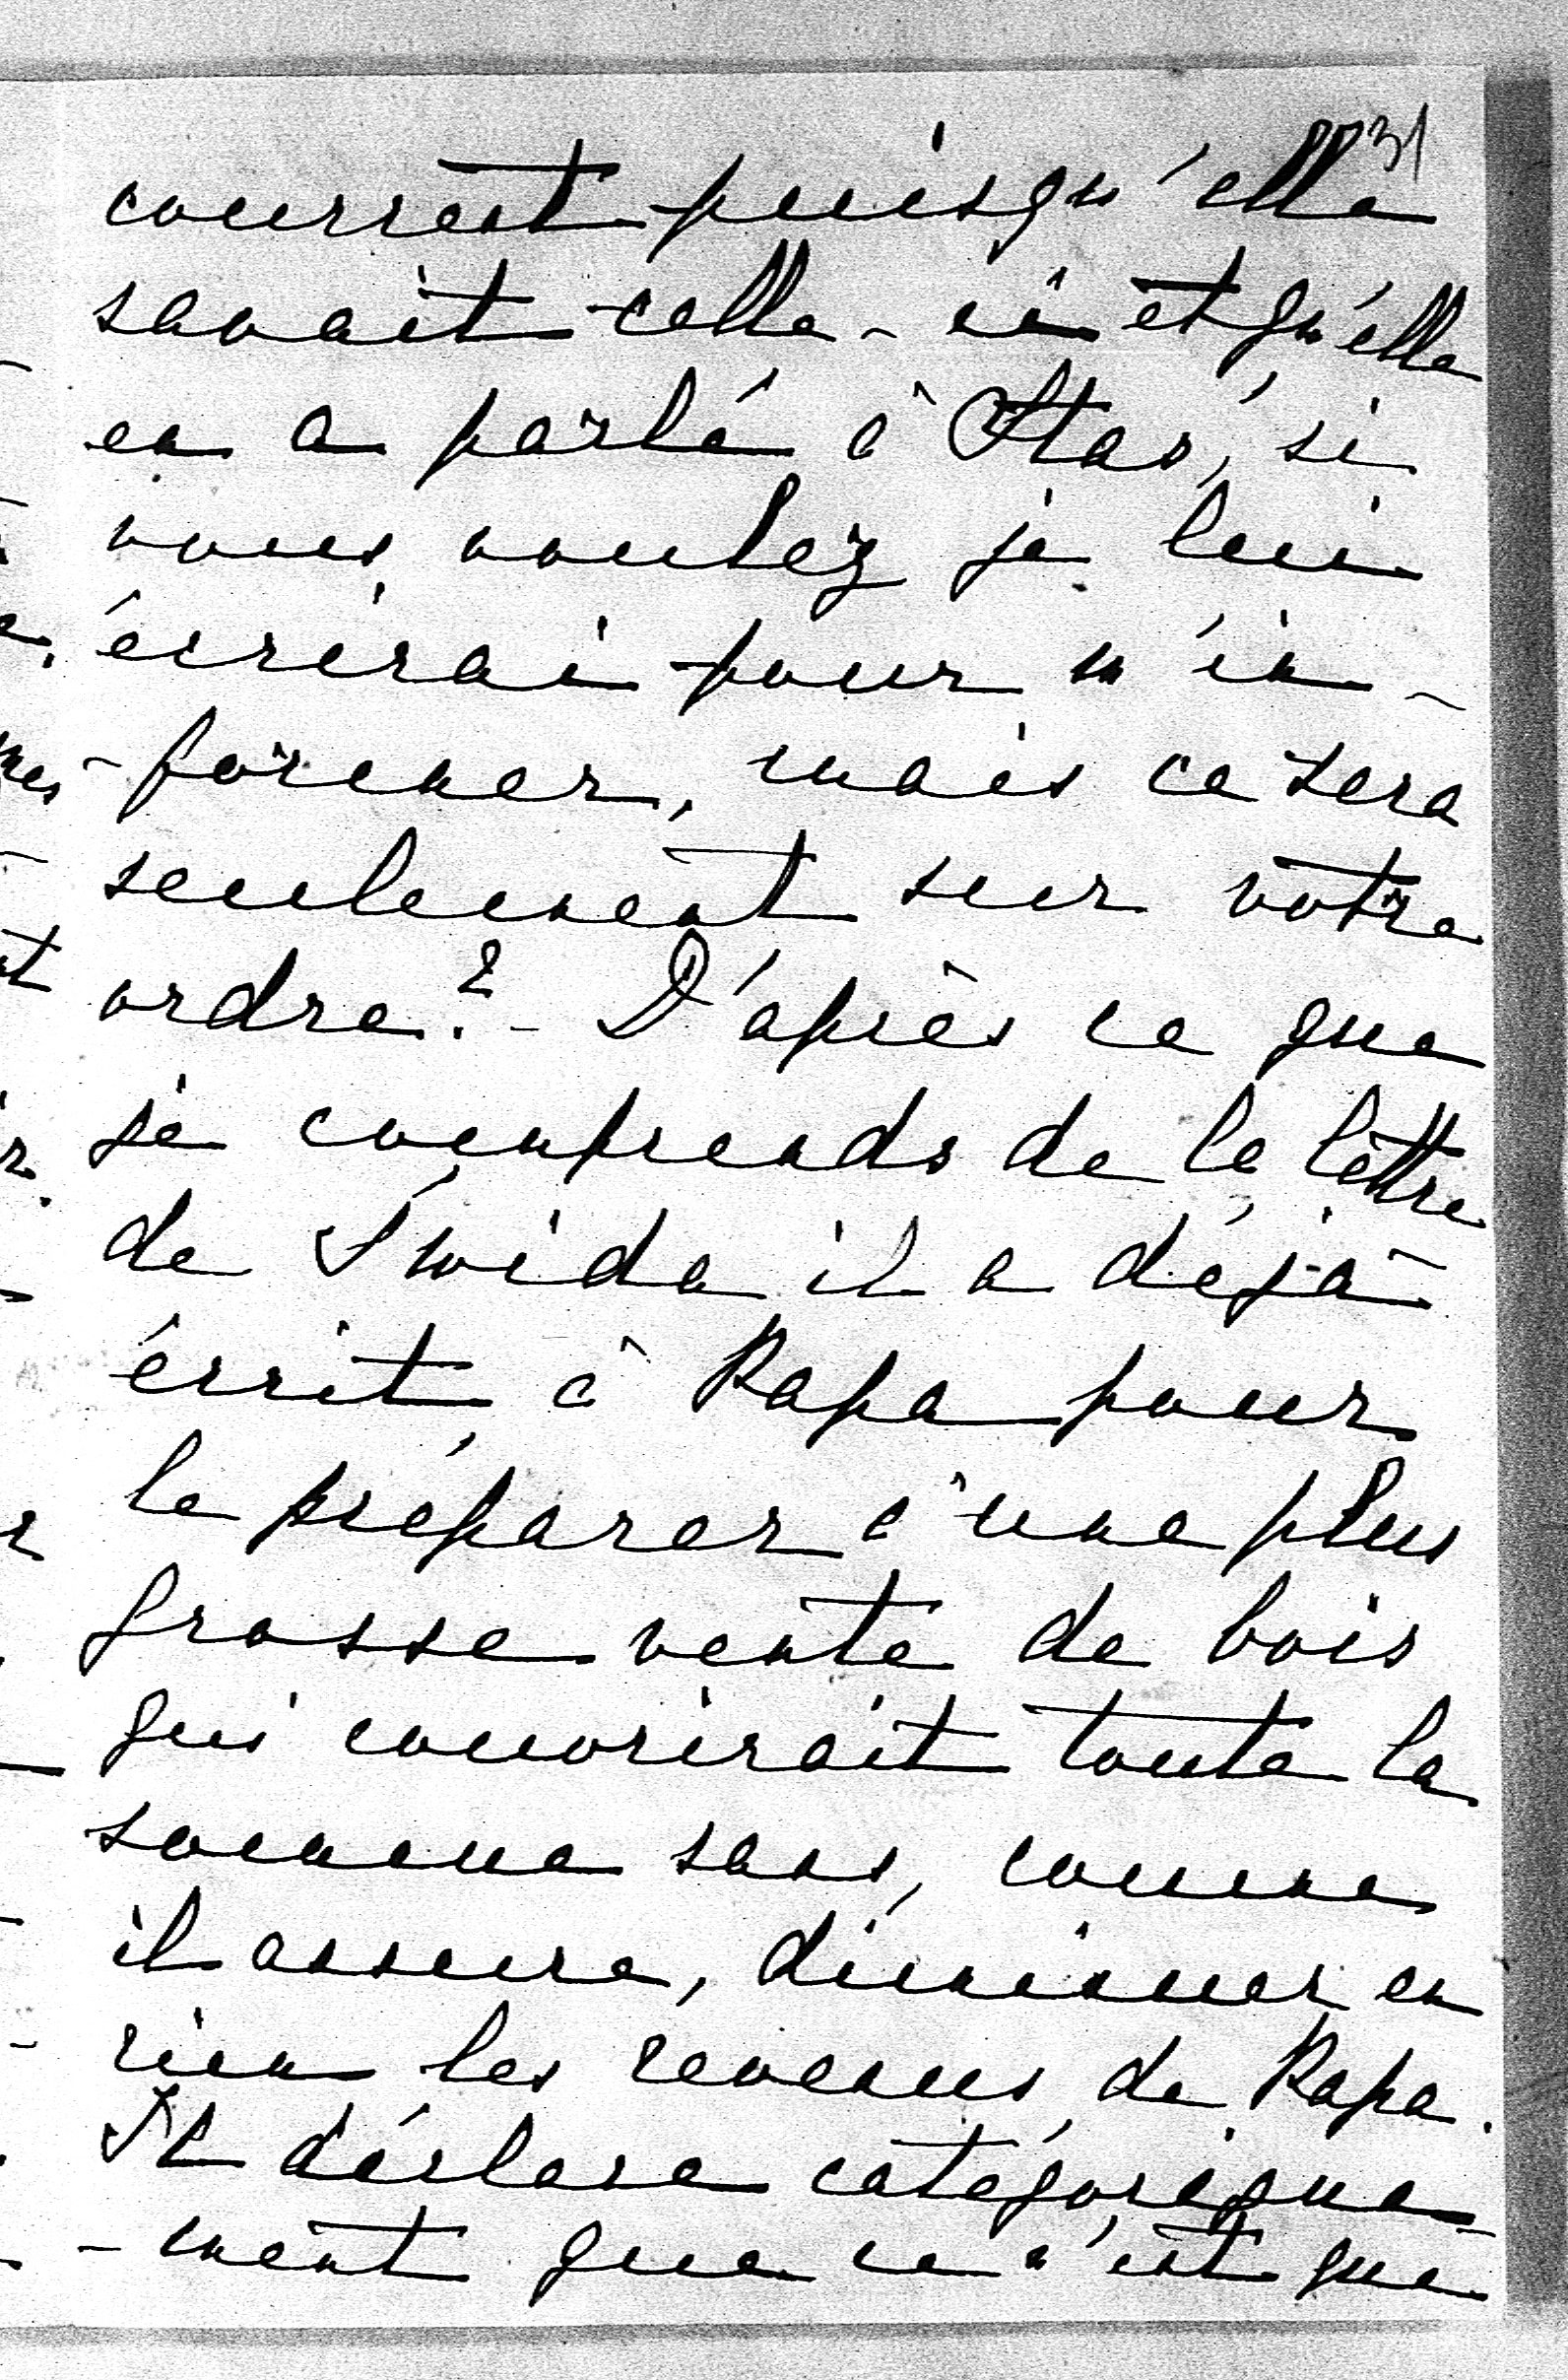 31
courrent puisqu'elle
savait celle-ci et qu'elle
en a parlé à Staś, si
vous voulez je lui
écrirai pour m'in-
-former, mais ce sera
seulement sur votre
ordre?- D'après ce que
je comprends de la lettre
de Świda il a déjà
écrit à Papa pour
le préparer à une plus
grosse vente de bois
qui couvrirait toute la
somme sans, comme
il assure, diminuer en
rien les revenus de Papa.
Il déclare catégorique-
-ment que ce n'est que